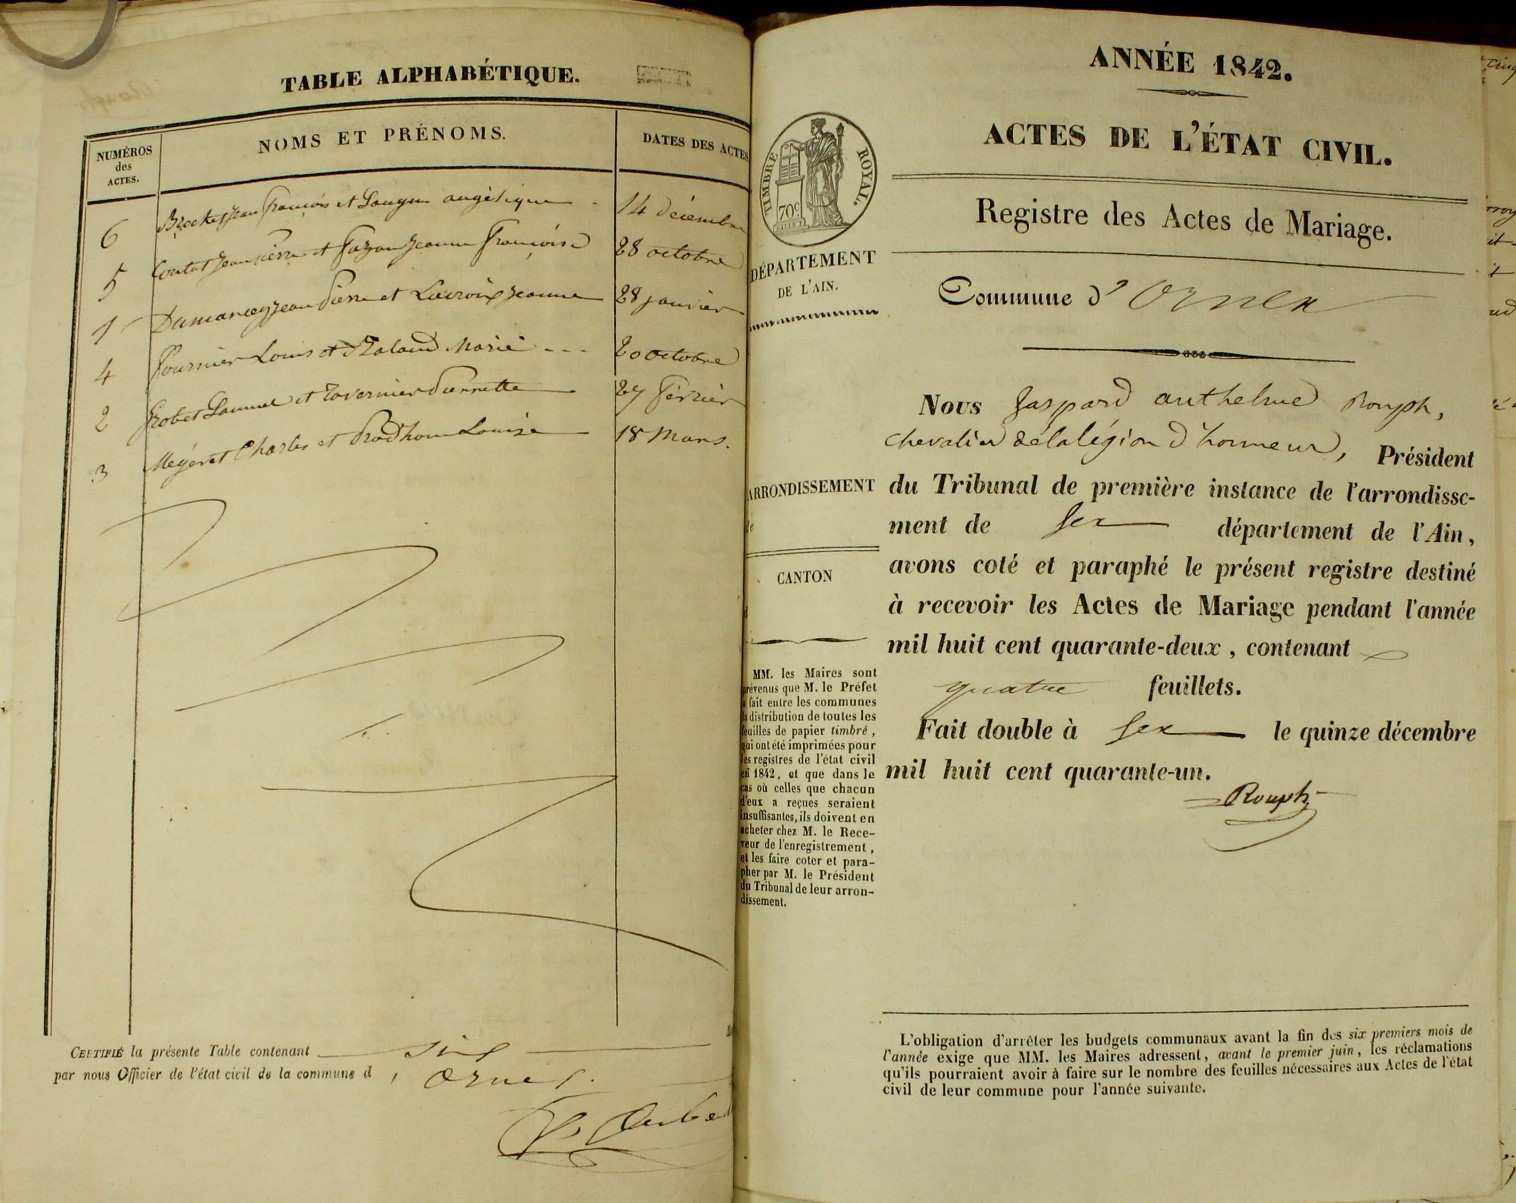 TABLE ALPHABÉTIQUE.
NUMÉROS
des
ACTES.
NOMS ET PRÉNOMS.
DATES DES ACTES
6 Jean François et angélique 14 décembre
5 Coutat Jean pierre et Jeanne Françoise 28 octobre
1 Dumarcey Jean Pierre et Lacroix Jeanne 28 janvier
4 Fournier Louis et Marie 20 octobre
2 Grobet et Tavernier Pernette 27 février
3 Mégevet Charles et Prodhom Louise 18 Mars.
CERTIFIÉ la présente Table contenant
par nous Officier de l'état civil de la commune d'Ornex.
ANNÉE 1842.
ACTES DE L'ÉTAT CIVIL.
Registre des Actes de Mariage.
Commune d'Ornex
TIMBRE ROYAL.
70c
DÉPARTEMENT
DE L'AIN.
ARRONDISSEMENT
CANTON
MM. les Maires sont
prévenus que M. le Préfet
a fait entre les communes
la distribution de toutes les
feuilles de papier timbré,
qui ont été imprimées pour
les registres de l'état civil
en 1842, et que dans le
cas où celles que chacun
d'eux a reçues seraient
insuffisantes, ils doivent en
acheter chez M. le Rece-
veur de l'enregistrement,
et les faire coter et para-
pher par M. le Président
du Tribunal de leur arron-
dissement.
Nous Gaspard anthelme Rouph,
chevalier de la légion d'honneur, Président
du Tribunal de première instance de l'arrondisse-
ment de Gex département de l'Ain,
avons coté et paraphé le présent registre destiné
à recevoir les Actes de Mariage pendant l'année
mil huit cent quarante-deux, contenant
quatre feuillets.
Fait double à Gex le quinze décembre
mil huit cent quarante-un.
Rouph
L'obligation d'arrêter les budgets communaux avant la fin des six premiers mois de
l'année exige que MM. les Maires adressent, avant le premier juin, les réclamations
qu'ils pourraient avoir à faire sur le nombre des feuilles nécessaires aux Actes de l'état
civil de leur commune pour l'année suivante.